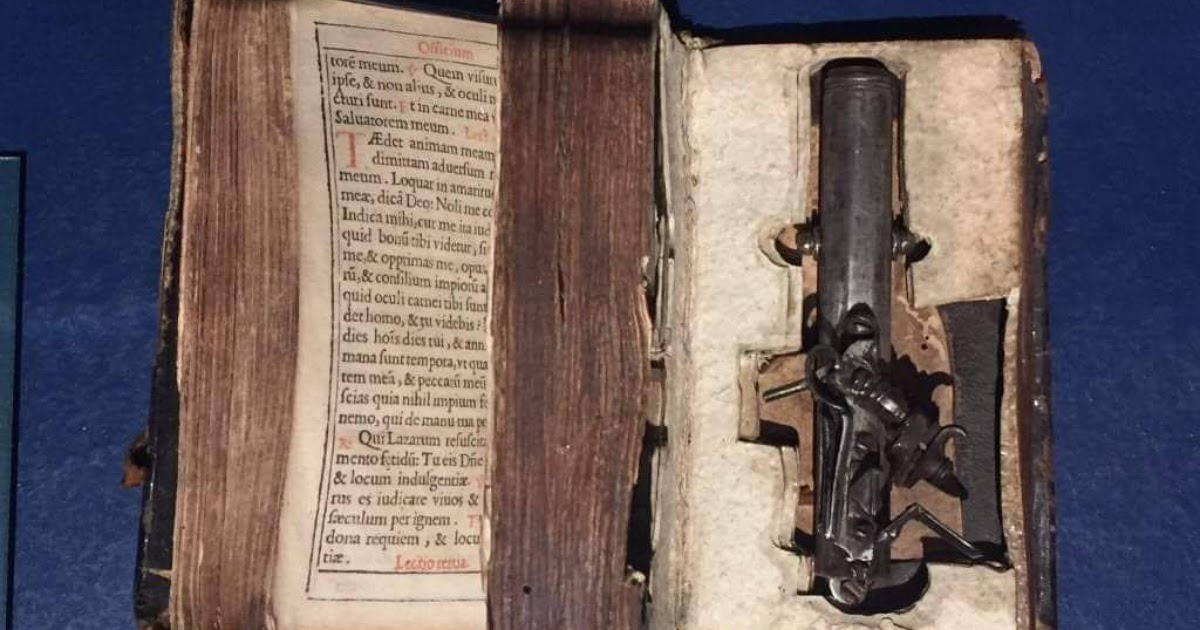 Officium
torē meum. ℣ Quem visur
ipse, & non alius, & oculi
cturi sunt. Et in carne mea
Saluatorem meum. Lect.
TÆdet animam meam
dimittam aduersum
meum. Loquar in amaritu
meæ, dicā Deo: Noli me co
Indica mihi, cur me ita iud
quid bonū tibi videtur, si
me, & opprimas me, opus
rū, & consilium impiorū a
quid oculi carnei tibi sunt
det homo, & tu videbis?
dies hoīs dies tui, & ann
mana sunt tempora, vt qua
tem meā, & peccatū meū
scias quia nihil impium fe
nemo, qui de manu tua po
℟ Qui Lazarum resuscita
mento fetidū: Tu eis Dñe
& locum indulgentiæ.
rus es iudicare viuos &
sæculum per ignem.
dona requiem, & locu
tiæ. Lectio tertia